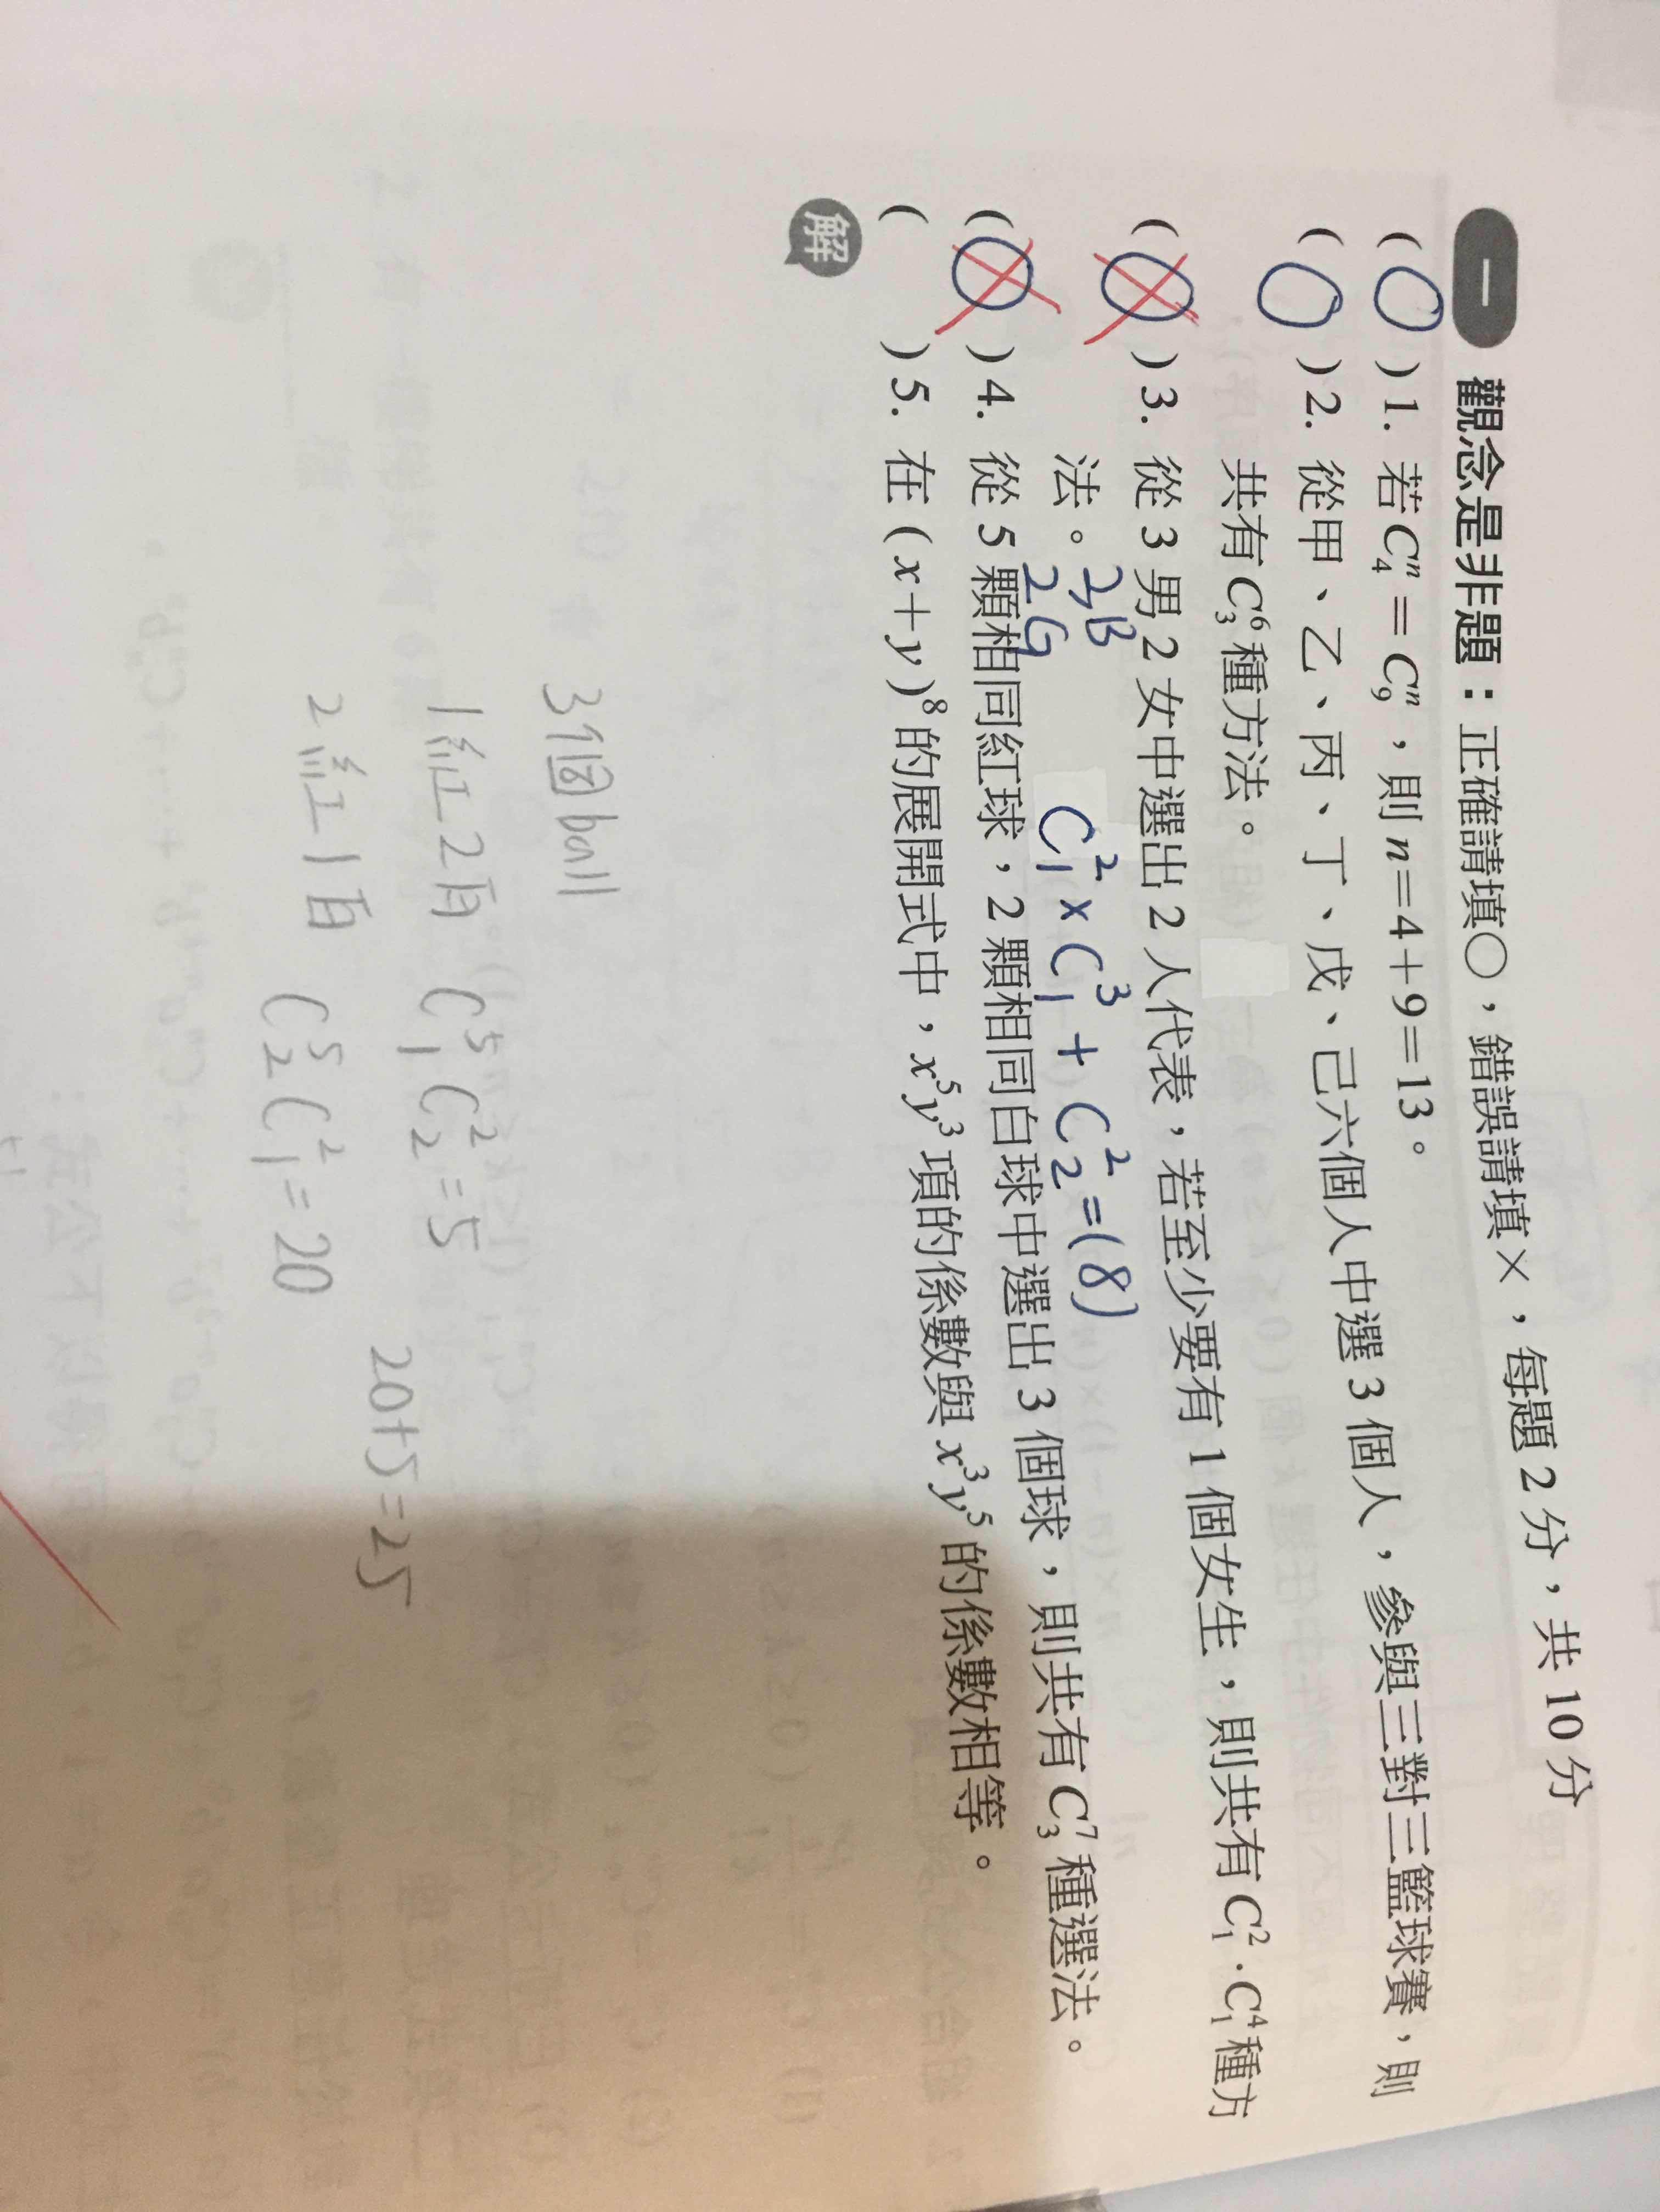 一 觀念是非題：正確請填○，錯誤請填×，每題 2 分，共 10 分
( ○ ) 1. 若 C^n_4 = C^n_9，則 n=4+9=13。
( ○ ) 2. 從甲、乙、丙、丁、戊、己六個人中選 3 個人，參與三對三籃球賽，則
共有 C^6_3 種方法。
( ○ ) 3. 從 3 男 2 女中選出 2 人代表，若至少要有 1 個女生，則共有 C^2_1·C^4_1 種方
法。
C^2_1 × C^3_1 + C^2_2 = (8)
2G
( ○ ) 4. 從 5 顆相同紅球，2 顆相同白球中選出 3 個球，則共有 C^7_3 種選法。
( ) 5. 在 (x+y)^8 的展開式中，x^5y^3 項的係數與 x^3y^5 的係數相等。
解
3個ball
1紅2白 C^5_1 C^2_2 = 5
20+5=25
2紅1白 C^5_2 C^2_1 = 20